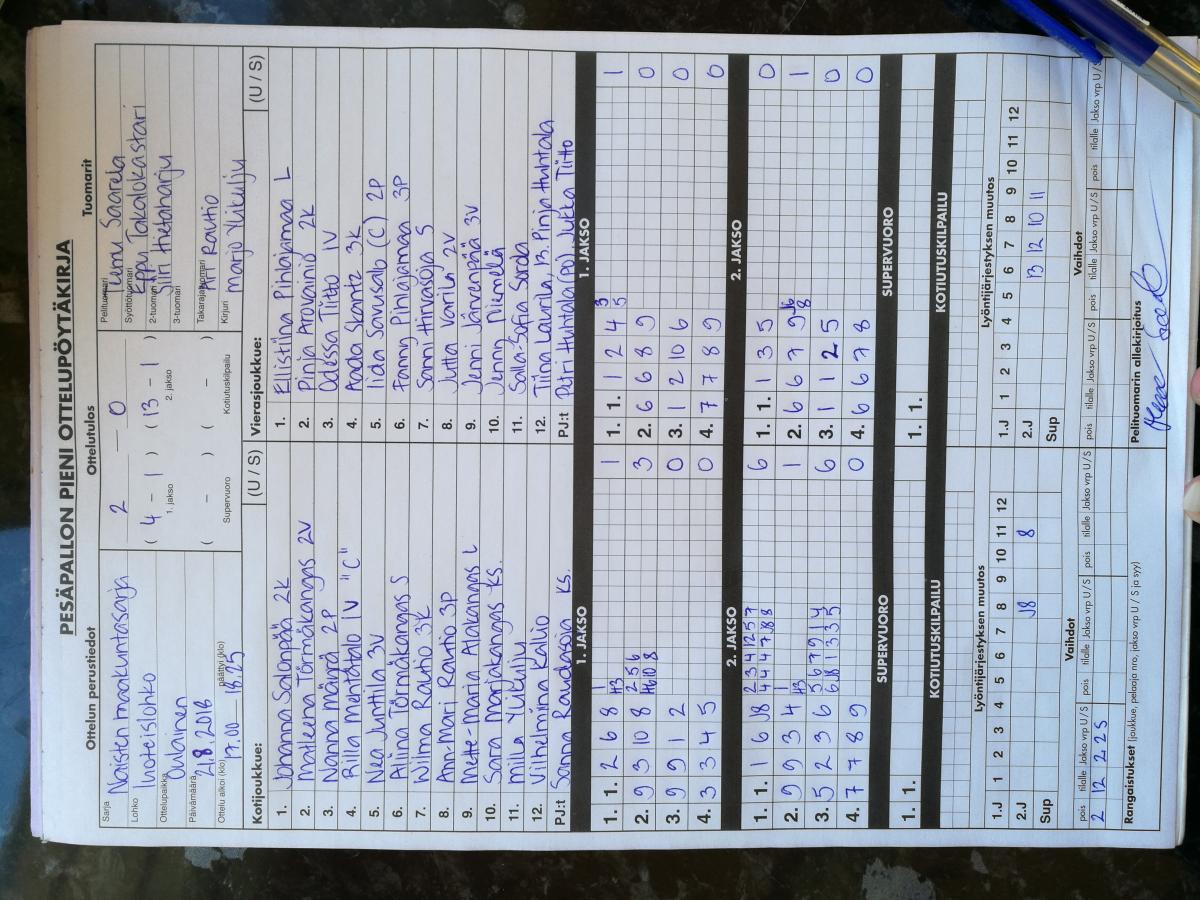 PESÄPALLON PIENI OTTELUPÖYTÄKIRJA
Ottelun perustiedot
Sarja
Naisten maakuntasarja
Lohko
luoteislohko
Ottelupaikka
Oulainen
Päivämäärä
21.8.2018
Ottelu alkoi (klo)
17.00 — 18.25
päättyi (klo)
Ottelutulos
2 — 0
( 4 - 1 ) ( 13 - 1 )
1. jakso 2. jakso
( - ) ( - )
Supervuoro Kotiutuskilpailu
Tuomarit
Pelituomari
Saarela
Syöttötuomari
Eppu Takalokastari
2-tuomari
Siiri Hietaharju
3-tuomari
Takarajatuomari
Ari Rautio
Kirjuri
Marjo Ylikulju
Kotijoukkue: (U / S)
1. Johanna Salonpää 2k
2. Matleena Törmäkangas 2V
3. Nanna Männä 2P
4. Riilla Mehtätalo 1V "C"
5. Nea Junttila 3V
6. Aliina Törmäkangas S
7. Wilma Rautio 3k
8. Ann-Mari Rautio 3P
9. Mette-Maria Alakangas L
10. Sara Marjakangas ks.
11. Milla Ylikulju
12. Vilhelmiina Kallio
PJ:t Sanna Raudasoja ks.
Vierasjoukkue: (U / S)
1. Eliistiina Pihlajamaa L
2. Pinja Arovainio 2k
3. Odessa Tiitto 1V
4. Aada Skantz 3k
5. Iida Savusalo (C) 2P
6. Fanny Pihlajamaa 3P
7. Sanni Hirvasoja S
8. Jutta Varila 2V
9. Jenni Järvenpää 3V
10. Jenny Niemelä
11. Salla-Sofia Sorda
12. Tiina Laurila, 13. Pinja Huhtala
PJ:t Petri Huhtala (PJ), Jukka Tiitto
1. JAKSO
1. 1. 2 6 8 1
2. 9 3 10 8 3
3. 9 9 1 2 0
4. 3 3 4 5 0
1. JAKSO
1. 1. 1 2 4 1
2. 6 6 8 9 0
3. 1 2 10 6 0
4. 7 7 8 9 0
2. JAKSO
1. 1. 1 6 6
2. 9 9 3 4 1
3. 5 2 3 6 6
4. 7 7 8 9 0
2. JAKSO
1. 1. 1 3 5 0
2. 6 6 7 9 1
3. 1 1 2 5 0
4. 6 6 7 8 0
SUPERVUORO
1. 1.
SUPERVUORO
1. 1.
KOTIUTUSKILPAILU
KOTIUTUSKILPAILU
Lyöntijärjestyksen muutos
1 2 3 4 5 6 7 8 9 10 11 12
1.J
2.J 8
Sup
Lyöntijärjestyksen muutos
1 2 3 4 5 6 7 8 9 10 11 12
1.J
2.J 13 12 10 11
Sup
Vaihdot
pois tilalle Jakso vrp U/S pois tilalle Jakso vrp U/S pois tilalle Jakso vrp U/S
2 12 2 2S
Vaihdot
pois tilalle Jakso vrp U/S pois tilalle Jakso vrp U/S pois tilalle Jakso vrp U/S
Rangaistukset (joukkue, pelaaja nro, jakso vrp U / S ja syy)
Pelituomarin allekirjoitus